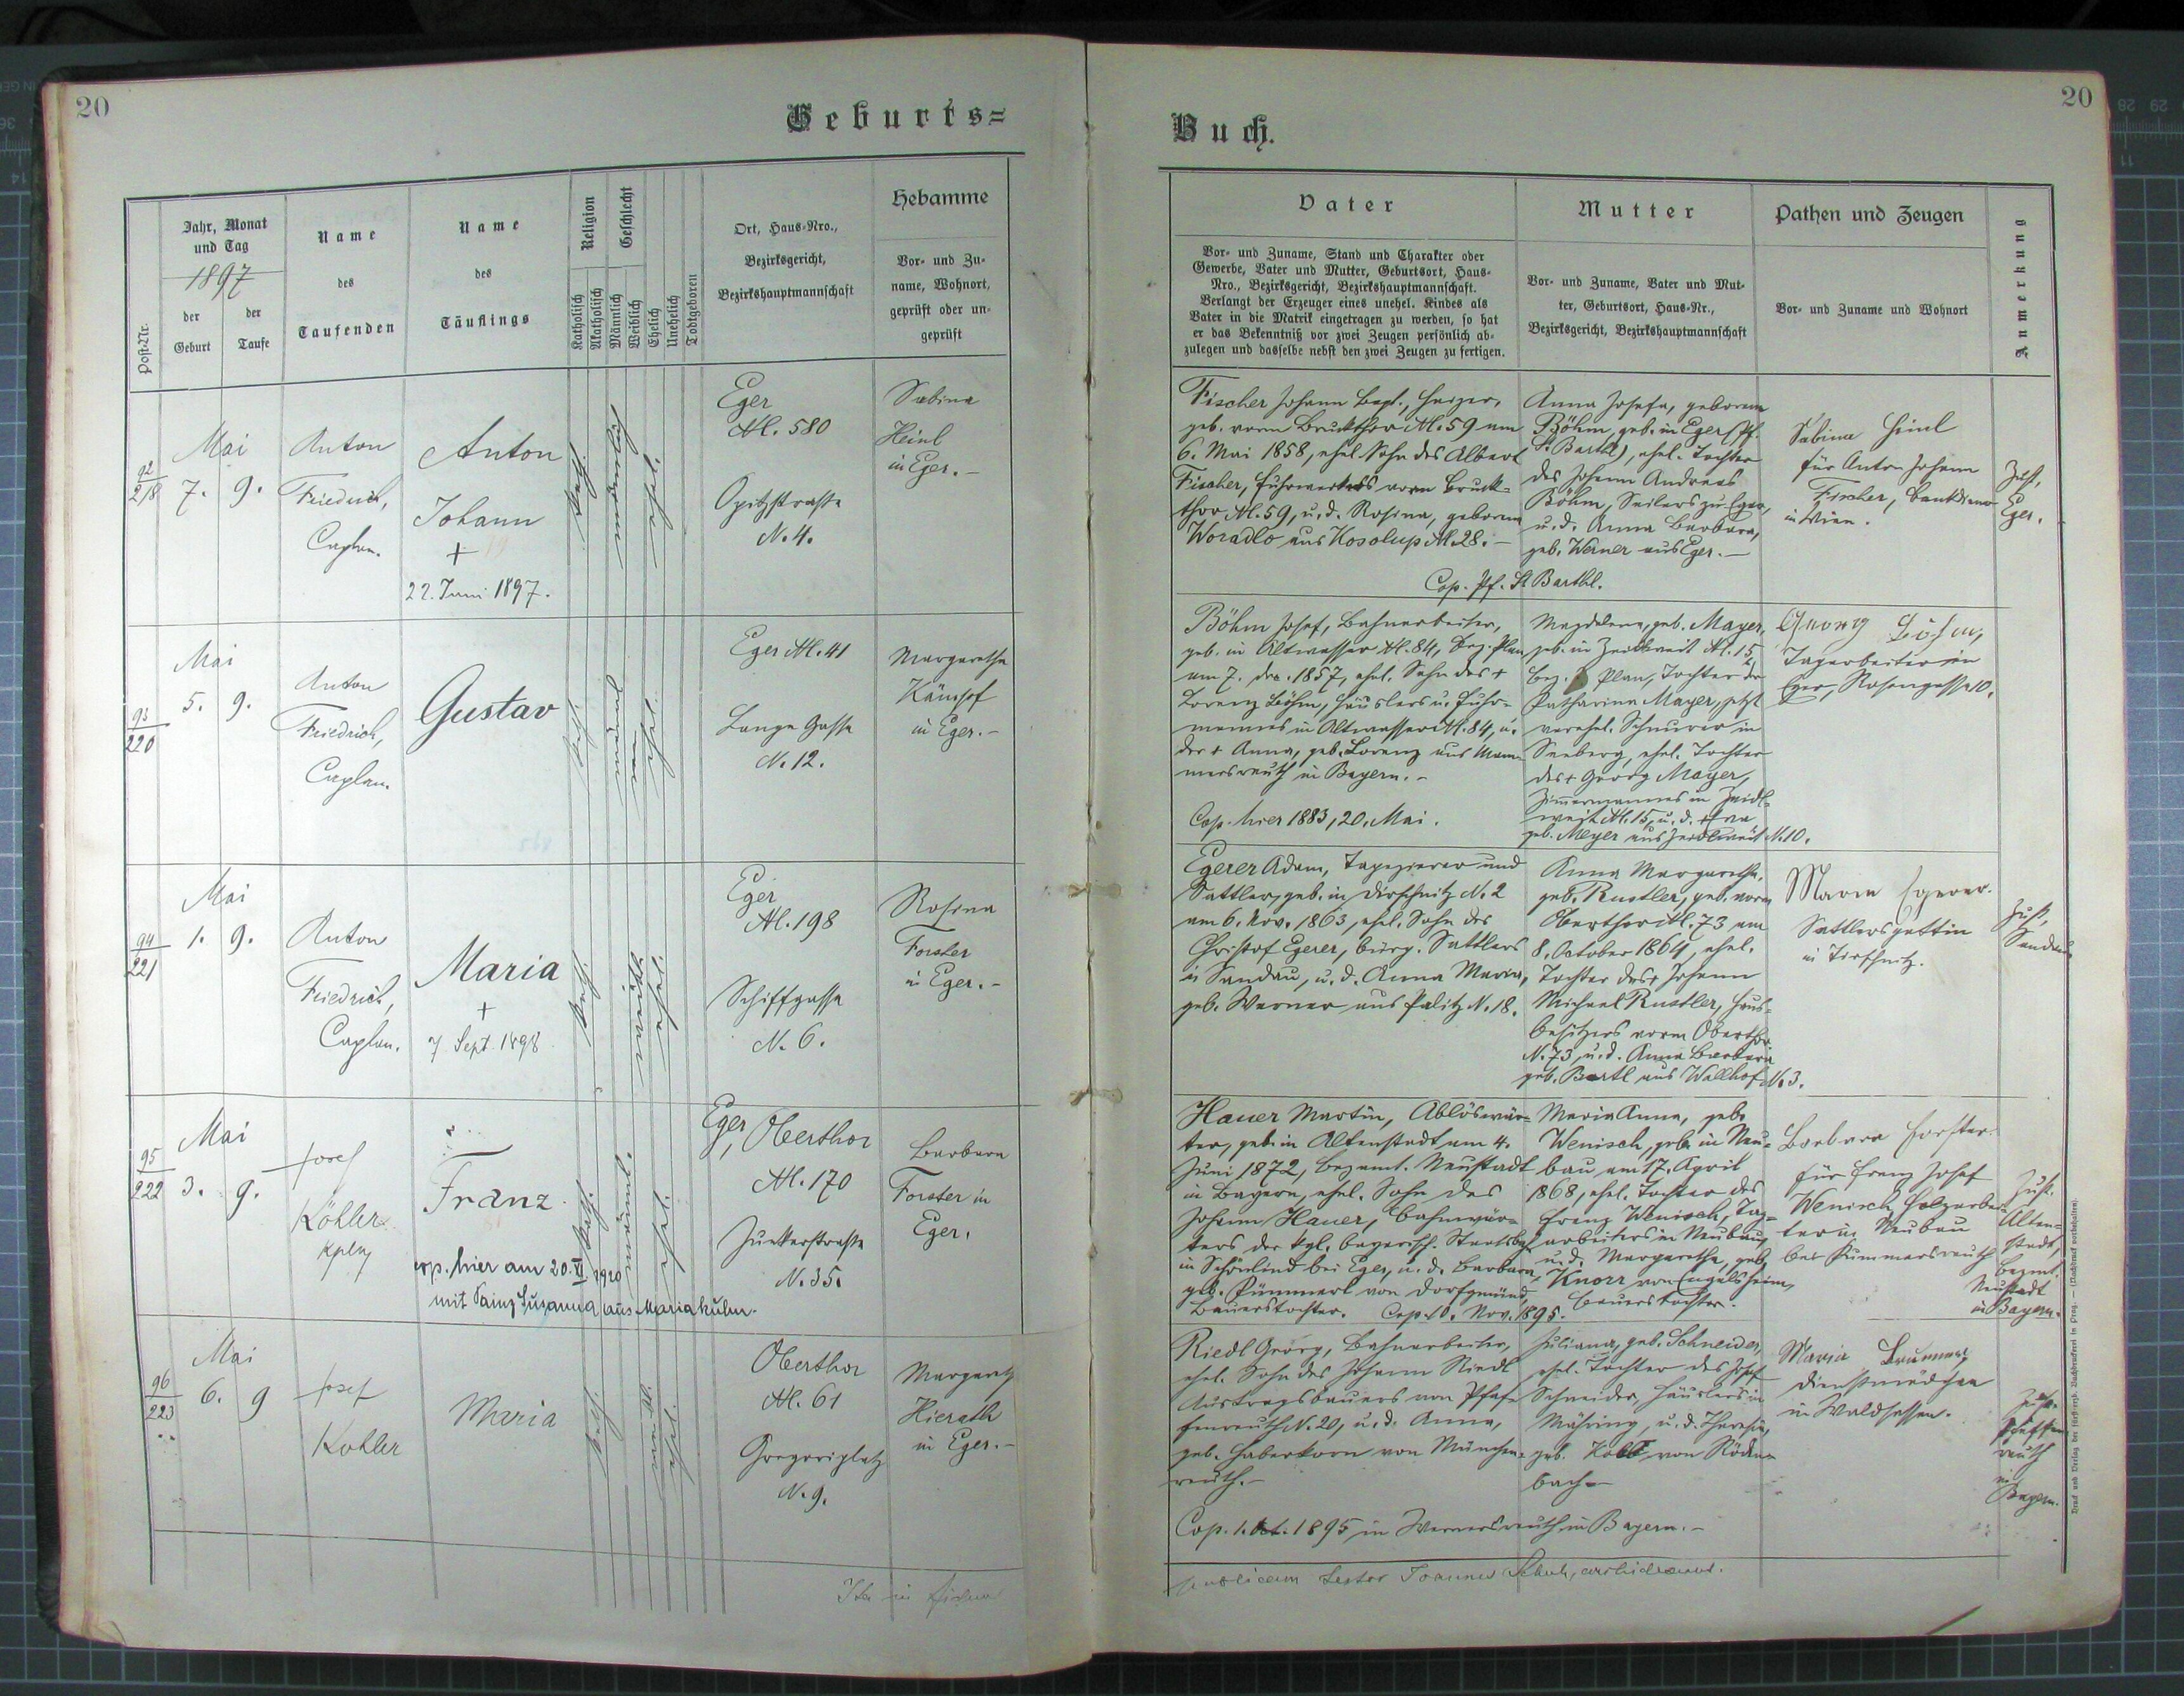 20
Geburts=
Post-Nr.
Jahr, Monat
und Tag
1897
der
Geburt
der
Taufe
Name
des
Taufenden
Name
des
Täuflings
Religion
Katholisch
Akatholisch
Geschlecht
Männlich
Weiblich
Ehelich
Unehelich
Todtgeboren
Ort, Haus-Nro.,
Bezirksgericht,
Bezirkshauptmannschaft
Hebamme
Vor- und Zu-
name, Wohnort,
geprüft oder un-
geprüft
92
218
Mai
7. 9.
Anton
Friedrich,
Caplan.
Anton
Johann
+
22. Juni 1897.
kath.
männlich
ehel.
Eger
N. 580
Opitzstrasse
N. 4.
Sabina
Heinl
in Eger.-
93
220
Mai
5. 9.
Anton
Friedrich,
Caplan.
Gustav
kath.
ehel.
Eger N. 41
Lange Gasse
N. 12.
Margaretha
Kämpf
in Eger.-
94
221
Mai
1. 9.
Anton
Friedrich,
Caplan.
Maria
+
7 Sept. 1898
kath.
weibl.
ehel.
Eger
N. 198
Schiffgasse
N. 6.
Rosina
Forster
in Eger.-
95
222
Mai
3. 9.
Josef
Köhler
Kpln
Franz
cop. hier am 20. XI. 1920
mit Painz Susanna aus Mariakulm.
kath.
männl.
ehel.
Eger, Oberthor
N. 170
Junkerstrasse
N. 35.
Barbara
Forster in
Eger.
96
223
Mai
6. 9
Josef
Kohler
Maria
kath.
weibl.
ehel.
Oberthor
N. 61
Gregoriplatz
N. 9.
Margareth
Hierath
in Eger.-
Ita in fidem
20
Buch.
Vater
Vor- und Zuname, Stand und Charakter oder
Gewerbe, Vater und Mutter, Geburtsort, Haus-
Nro., Bezirksgericht, Bezirkshauptmannschaft.
Verlangt der Erzeuger eines unehel. Kindes als
Vater in die Matrik eingetragen zu werden, so hat
er das Bekenntniß vor zwei Zeugen persönlich ab-
zulegen und dasselbe nebst den zwei Zeugen zu fertigen.
Mutter
Vor- und Zuname, Vater und Mut-
ter, Geburtsort, Haus-Nr.,
Bezirksgericht, Bezirkshauptmannschaft
Pathen und Zeugen
Vor- und Zuname und Wohnort
Anmerkung
Fischer Johann Bapt., Heizer,
geb. vorm Bruckthor N. 59 am
6. Mai 1858, ehel. Sohn des Albert
Fischer, Fuhrwerkers vorm Bruck-
thor N. 59, u. d. Rosina, geborene
Woradlo aus Kosolup N. 28.-
Anna Josefa, geborene
Böhm, geb. in Eger (Pf.
St. Barthl), ehel. Tochter
des Johann Andreas
Böhm, Seilers zu Eger,
u. d. Anna Barbara,
geb. Werner aus Eger.-
Cop. Pf. St Barthl.
Sabina Heinl
für Anton Johann
Fischer, Bankdiener
in Wien.
Zust.
Eger.
Böhm Josef, Bahnarbeiter,
geb. in Altwasser N. 84, Bez. Plan
am 7. Dez. 1857, ehel. Sohn des +
Lorenz Böhm, Häuslers u. Fuhr-
mannes in Altwasser N. 84, u.
der + Anna, geb. Lorenz aus Mam-
mersreuth in Bayern.-
Cop. hier 1883, 20. Mai.
Magdalena, geb. Mayer,
geb. in Zeidlweit N. 15,
Bez. Plan, Tochter der
Katharina Mayer, jetzt
verehel. Schnurer in
Seeberg, ehel. Tochter
des + Georg Mayer,
Zimmermannes in Zeidl-
weit N. 15, u. d. + Eva
geb. Meyer aus Zeidlweit N. 10.
Georg Böhm,
Tagarbeiter in
Eger, Rosengasse 10.
Egerer Adam, Tapezierer und
Sattler, geb. in Dirschnitz N. 2
am 6. Nov. 1863, ehel. Sohn des
Christof Egerer, bürg. Sattlers
in Sandau, u. d. Anna Maria,
geb. Werner aus Palitz N. 18.
Anna Margaretha,
geb. Rustler, geb. vorm
Oberthor N. 73 am
8. October 1864, ehel.
Tochter des + Johann
Michael Rustler, Haus-
besitzers vorm Oberthor
N. 73, u. d. Anna Barbara
geb. Bartl aus Wallhof N. 3.
Maria Egerer.
Sattlersgattin
in Tirschnitz.
Zust.
Sandau
Hauer Martin, Ablöswär-
ter, geb. in Altenstadt am 4.
Juni 1872, Bezamt. Neustadt
in Bayern, ehel. Sohn des
Johann Hauer, Bahnwär-
ters der kgl. bayerisch. Staatsbahn
in Schönlind bei Eger, u. d. Barbara
geb. Pümmerl von Dorfgmünd,
Bauerstochter. Cop. 10. Nov. 1895.
Maria Anna, gebo
Wenisch, geb. in Neu-
bau, am 17. April
1868, ehel. Tochter des
Franz Wenisch, Tag-
arbeiters in Neubau,
u. d. Margaretha, geb.
Knorr von Engelsheim,
Bauerstochter.
Barbara Forster
für Franz Josef
Wenisch, Holzarbei-
ter in Neubau
bei Kummersreuth
Zust.
Alten-
stadt,
Bezamt.
Neustadt
in Bayern.
Riedl Georg, Bahnarbeiter,
ehel. Sohn des Johann Riedl
Austragsbauers von Pfaf-
fenreuth N. 20, u. d. Anna,
geb. Haberkorn von München-
reuth.-
Cop. 1. Oct. 1895 in Wernersreuth in Bayern.-
Juliana, geb. Schneider,
ehel. Tochter des Josef
Schneider, Häuslers in
Mähring, u. d. Theresia,
geb. von Röden-
bach-
Maria Brunner,
Dienstmädchen
in Waldsassen.
Zust.
Pfaffen
reuth
in
Bayern.
publicam testor Joannes archidecanus.
Druck und Verlag der fürsterzb. Buchdruckerei in Prag. — (Nachdruck vorbehalten).